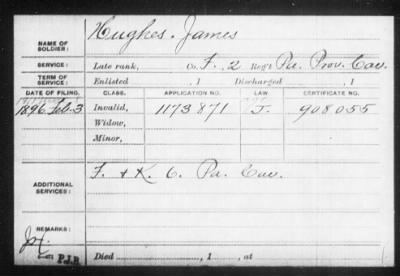 NAME OF SOLDIER: Hughes, James
SERVICE: Late rank, Co. F, 2 Reg't Pa. Prov. Cav.
TERM OF SERVICE: Enlisted , 1 Discharged , 1
DATE OF FILING. CLASS. APPLICATION NO. LAW CERTIFICATE NO.
1896 Feb. 3 Invalid, 1173871 J. 908055
Widow,
Minor,
ADDITIONAL SERVICES: F. & K. 6. Pa. Cav.
REMARKS:
P.J.B.
Died , 1 , at